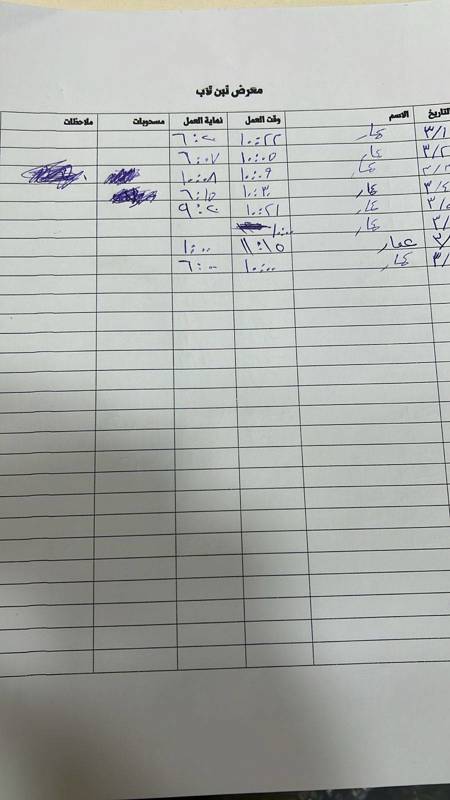 معرض تين تاب
التاريخ الاسم وقت العمل نهاية العمل مسحوبات ملاحظات
٣/١ عمار ١٠:٢٢
٣/٢ عمار ١٠:٠٥ ٦:٠٧
عمار ١٠:٠٩ ١٠:٠٨
٣/٤ عمار ١٠:٣٠ ٦:١٥
٣/٥ عمار ١٠:٢١
عمار ١٠:٠٠
عمار ١١:١٥ ١:٠٠
عمار ١٠:٠٠ ٦:٠٠